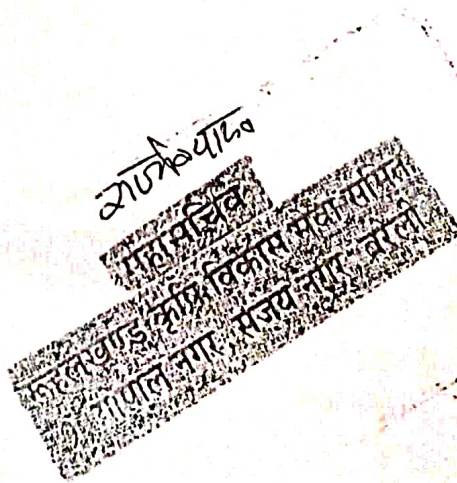 महासचिव
रूहेलखण्ड कृषि विकास सेवा समिति
गोपाल नगर, संजय नगर, बरेली